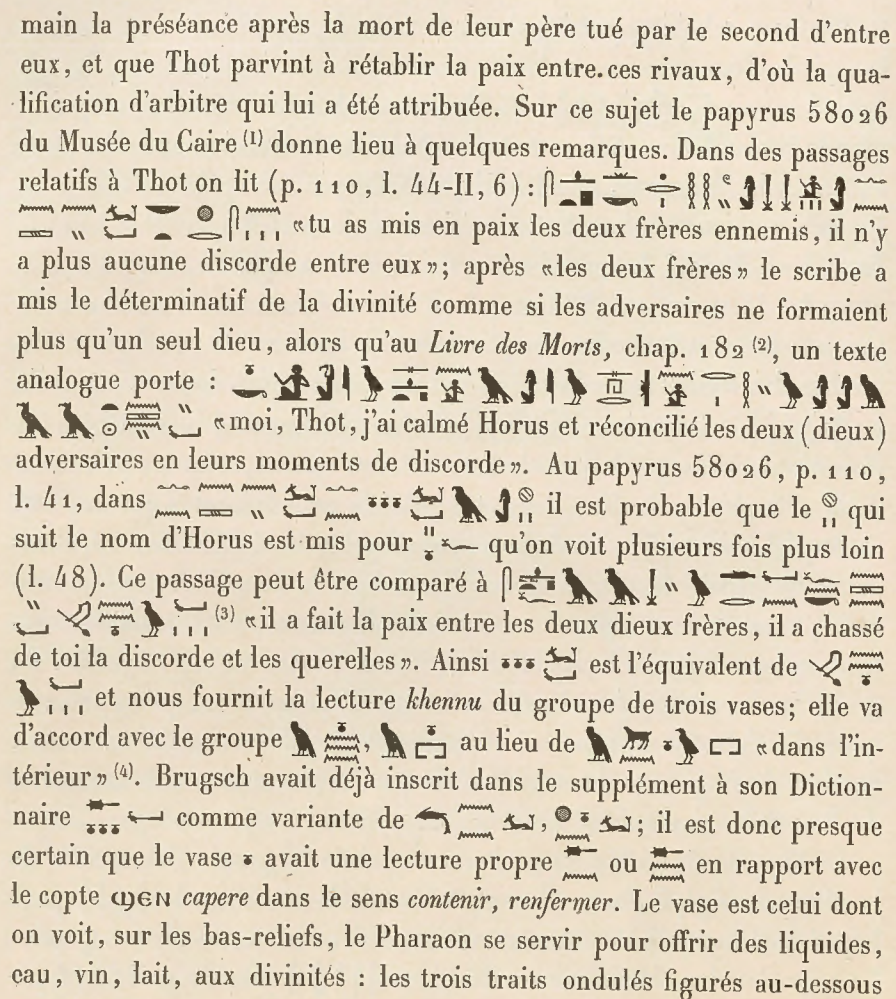 main la préséance après la mort de leur père tué par le second d'entre
eux, et que Thot parvint à rétablir la paix entre.ces rivaux, d'où la qua-
lification d'arbitre qui lui a été attribuée. Sur ce sujet le papyrus 58026
du Musée du Caire (1) donne lieu à quelques remarques. Dans des passages
relatifs à Thot on lit (p. 110, l. 44-II, 6) :
«tu as mis en paix les deux frères ennemis, il n'y
a plus aucune discorde entre eux»; après «les deux frères» le scribe a
mis le déterminatif de la divinité comme si les adversaires ne formaient
plus qu'un seul dieu, alors qu'au Livre des Morts, chap. 182 (2), un texte
analogue porte :
«moi, Thot, j'ai calmé Horus et réconcilié les deux (dieux)
adversaires en leurs moments de discorde». Au papyrus 58026, p. 110,
l. 41, dans il est probable que le qui
suit le nom d'Horus est mis pour qu'on voit plusieurs fois plus loin
(l. 48). Ce passage peut être comparé à
(3) «il a fait la paix entre les deux dieux frères, il a chassé
de toi la discorde et les querelles». Ainsi est l'équivalent de
et nous fournit la lecture khennu du groupe de trois vases; elle va
d'accord avec le groupe , au lieu de «dans l'in-
térieur» (4). Brugsch avait déjà inscrit dans le supplément à son Diction-
naire comme variante de , ; il est donc presque
certain que le vase avait une lecture propre ou en rapport avec
le copte ϣⲉⲛ capere dans le sens contenir, renfermer. Le vase est celui dont
on voit, sur les bas-reliefs, le Pharaon se servir pour offrir des liquides,
eau, vin, lait, aux divinités : les trois traits ondulés figurés au-dessous